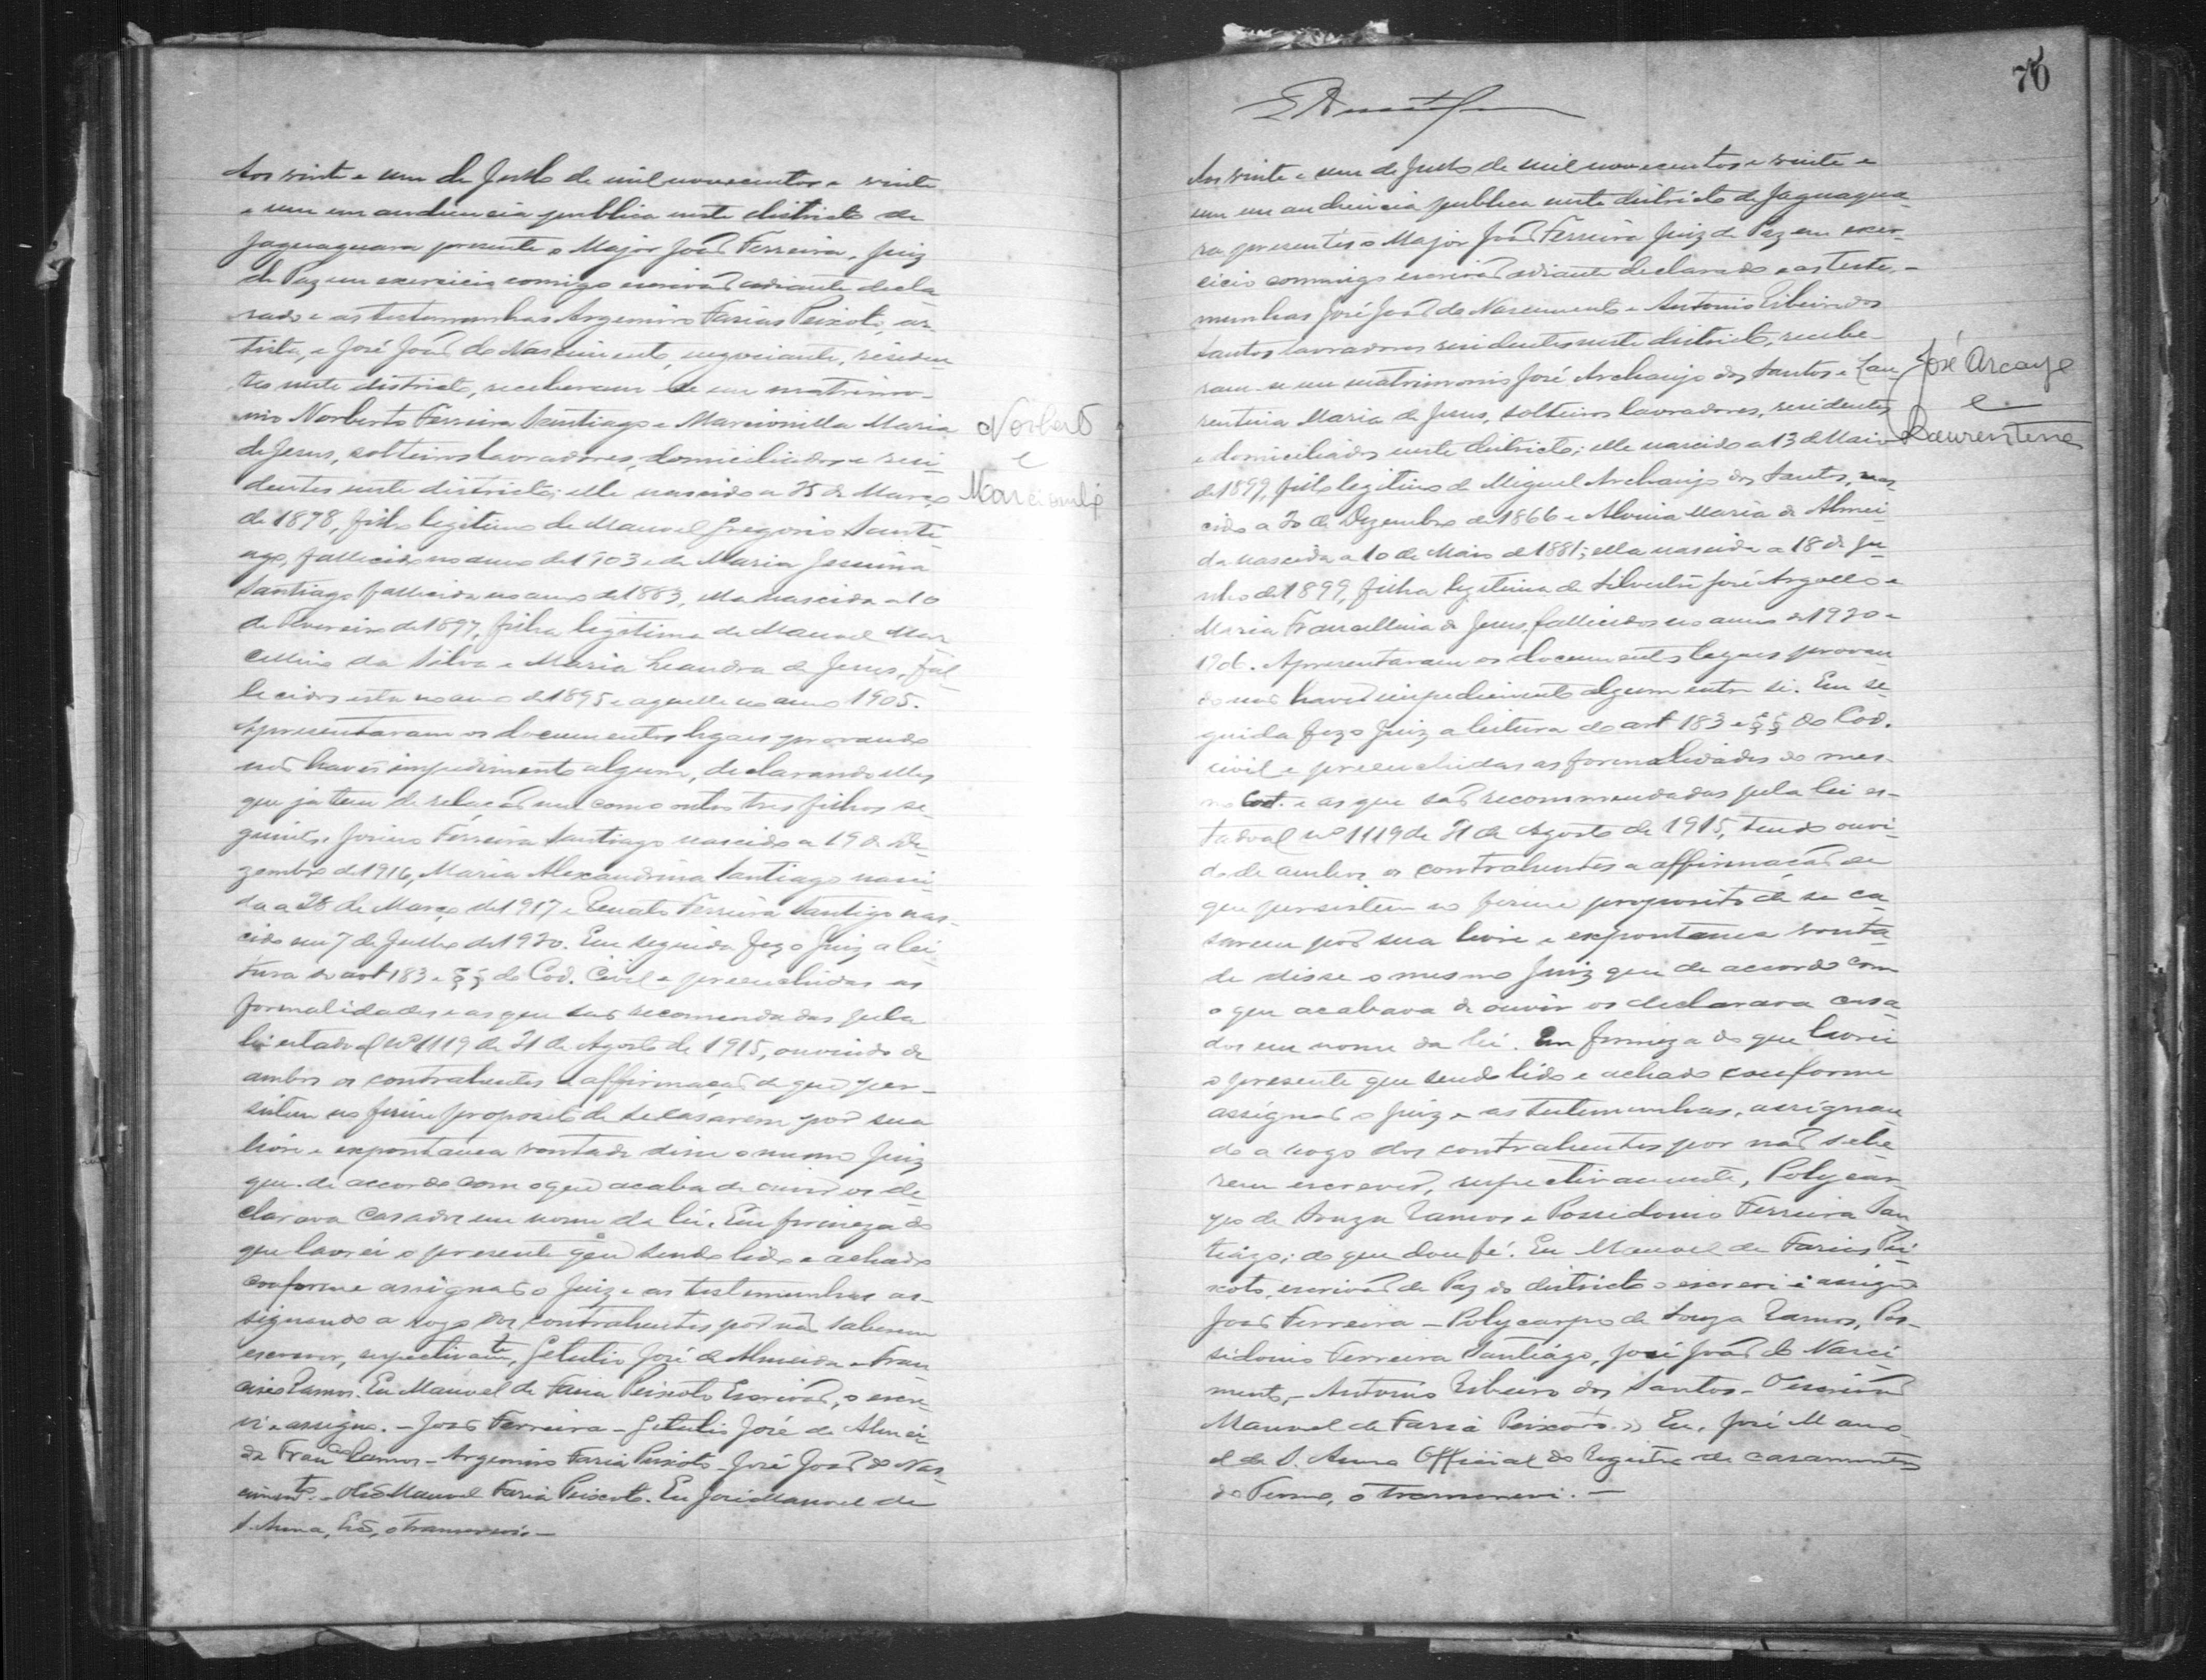 Aos vinte e um de Julho de mil novecentos e vinte
e um em audiencia publica neste districto de
Jaguaquara presente o Major João Ferreira, Juiz
de Paz em exercicio comigo escrivão adiante decla
rado e as testemunhas Argemiro Farias Peixoto, ar
tista, e José João do Nascimento, negociante, residen
tes neste districto, receberam se em matrimo-
nio Norberto Ferreira Santiago e Marcionilla Maria
de Jesus, solteiros lavradores, domiciliados e resi-
dentes neste districto; elle nascido a 25 de Março
de 1878, filho legitimo de Manoel Gregorio Santi
ago, fallecido no anno de 1903 e de Maria Jesuina
Santiago fallecida no anno de 1883, ella nascida a 10
de Fevereiro de 1897, filha legitima de Manoel Mar
cellino da Silva e Maria Leandra de Jesus, fal-
lecidos esta no anno de 1895 e aquelle no anno 1905.
Apresentaram os documentos legaes provando
não haver impedimento algum, declarando elles
que já tem de relação um com o outro tres filhos se-
guintes, Ferreira Santiago nascido a 19 de De-
zembro de 1916, Maria Alexandrina Santiago nasci
da a 28 de Março de 1917 e Renato Ferreira Santigo nas-
cido em 7 de Julho de 1920. Em seguida fez o Juiz a lei
tura do art 183 e §§ do Cod. Civil e preenchidas as
formalidades e as que são recomendadas pela
lei estadoal Nº 1119 de 21 de Agosto de 1915, ouvindo de
ambos os contrahentes a affirmação de que per-
sistem no firme proposito de se casarem por sua
livre e expontanea vontade disse o mesmo Juiz
que de accordo com o que acaba de ouvir os de-
clarava casados em nome da lei. Em firmeza do
que lavrei o presente que sendo lido e achado
conforme assignão o Juiz e as testemunhas as-
signando a rogo dos contrahentes por não saberem
escrever, respectivate, Getulio José de Almeida e Fran
cisco Ramos. Eu Manoel de Faria Peixoto Escrivão, o escre-
vi e assigno. - João Ferreira - Getulio José de Almei-
da Franco Ramos - Argemiro Faria Peixoto - José João do Nas-
cimento. - Manoel Faria Peixoto. Eu José Manoel de
S. Anna, o transcrevi. -
Norberto
e
70
Aos vinte e um de Julho de mil novecentos e vinte e
um em audiencia publica neste districto de Jaguaqua-
ra presentes o Major João Ferreira Juiz de Paz em exer-
cicio commigo escrivão adiante declarado e as teste-
munhas José João do Nascimento e Antonio Ribeiro dos
Santos lavradores residentes neste districto, recebe-
ram-se em matrimonio José Archanjo dos Santos e Lau
rentina Maria de Jesus, solteiros lavradores, residentes
e domiciliados neste districto; elle nascido a 13 de Maio
de 1899, filho legitimo de Miguel Archanjo dos Santos, nas
cido a 20 de Dezembro de 1866 e Maria de Almei-
da nascida a 10 de Maio de 1881; ella nascida a 18 de Ju
nho de 1899, filha legitima de Silvestre José Argollo e
Maria Francellina de Jesus, fallecidos no anno de 1920 e
Apresentaram os documentos legaes provan
do não haver impedimento algum entre si. Em se-
guida fez o Juiz a leitura do art 183 e §§ do Cod.
civil e preenchidas as formalidades do mes-
mo Cod. e as que são recommendadas pela lei es-
tadoal nº 1119 de 21 de Agosto de 1915, tendo ouvi-
do de ambos os contrahentes a affirmação de
que persistem no firme proposito de se ca-
sarem por sua livre e expontanea vonta-
de disse o mesmo Juiz que de accordo com
o que acabava de ouvir os declarava casa-
dos em nome da lei. Em firmeza do que lavrei
o presente que sendo lido e achado conforme
assignão o Juiz e as testemunhas, assignan
do a rogo dos contrahentes por não sabe-
rem escrever, respectivamente, Polycar-
po de Souza Ramos e Possidonio Ferreira San
tiago; do que dou fé. Eu Manoel de Farias Pei-
xoto, escrivão de Paz do districto o escrevi e assigno
João Ferreira - Polycarpo de Souza Ramos, Pos-
sidonio Ferreira Santiago, José João do Nasci-
mento, - Antonio Ribeiro dos Santos - O escrivão
Manoel de Faria Peixoto.» Eu, José Mano-
el de S. Anna Official do Registro de casamentos
do Termo, o transcrevi. -
José Arcanjo
e
Laurentina